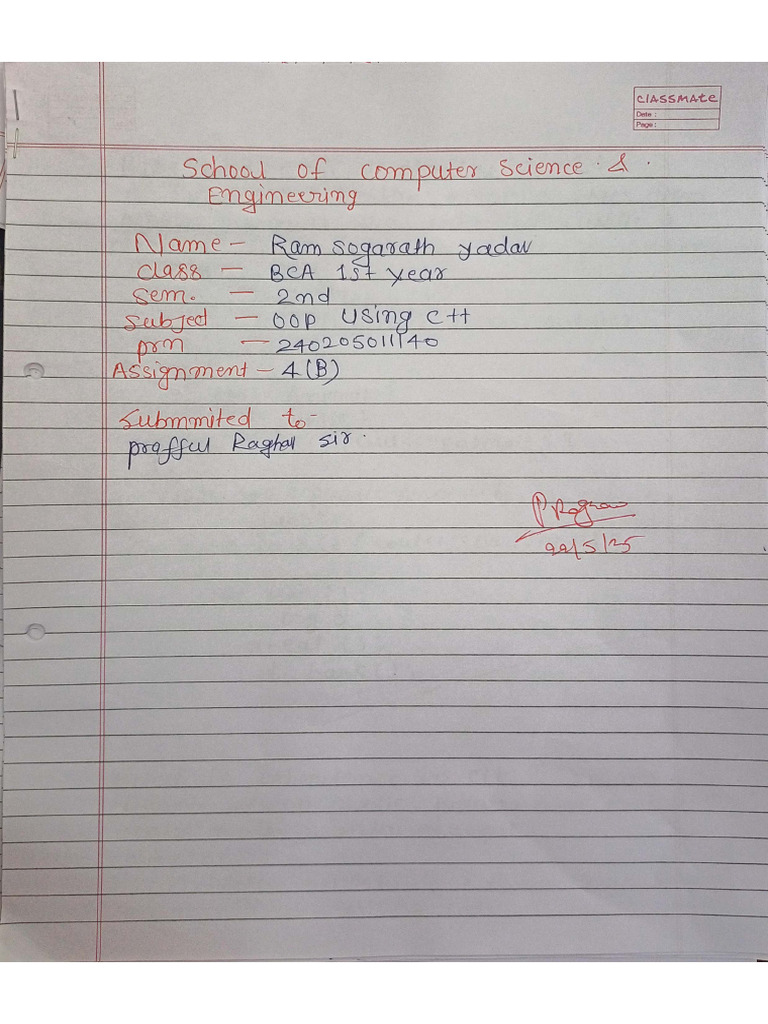 classmate
Date :
Page :
School of computer science &
Engineering
Name - Ram sogarath yadav
class - BCA 1st year
sem. - 2nd
subject - OOP using c++
prn - 240205011140
Assignment - 4(B)
submmited to -
prafful Raghav sir.
22/5/25